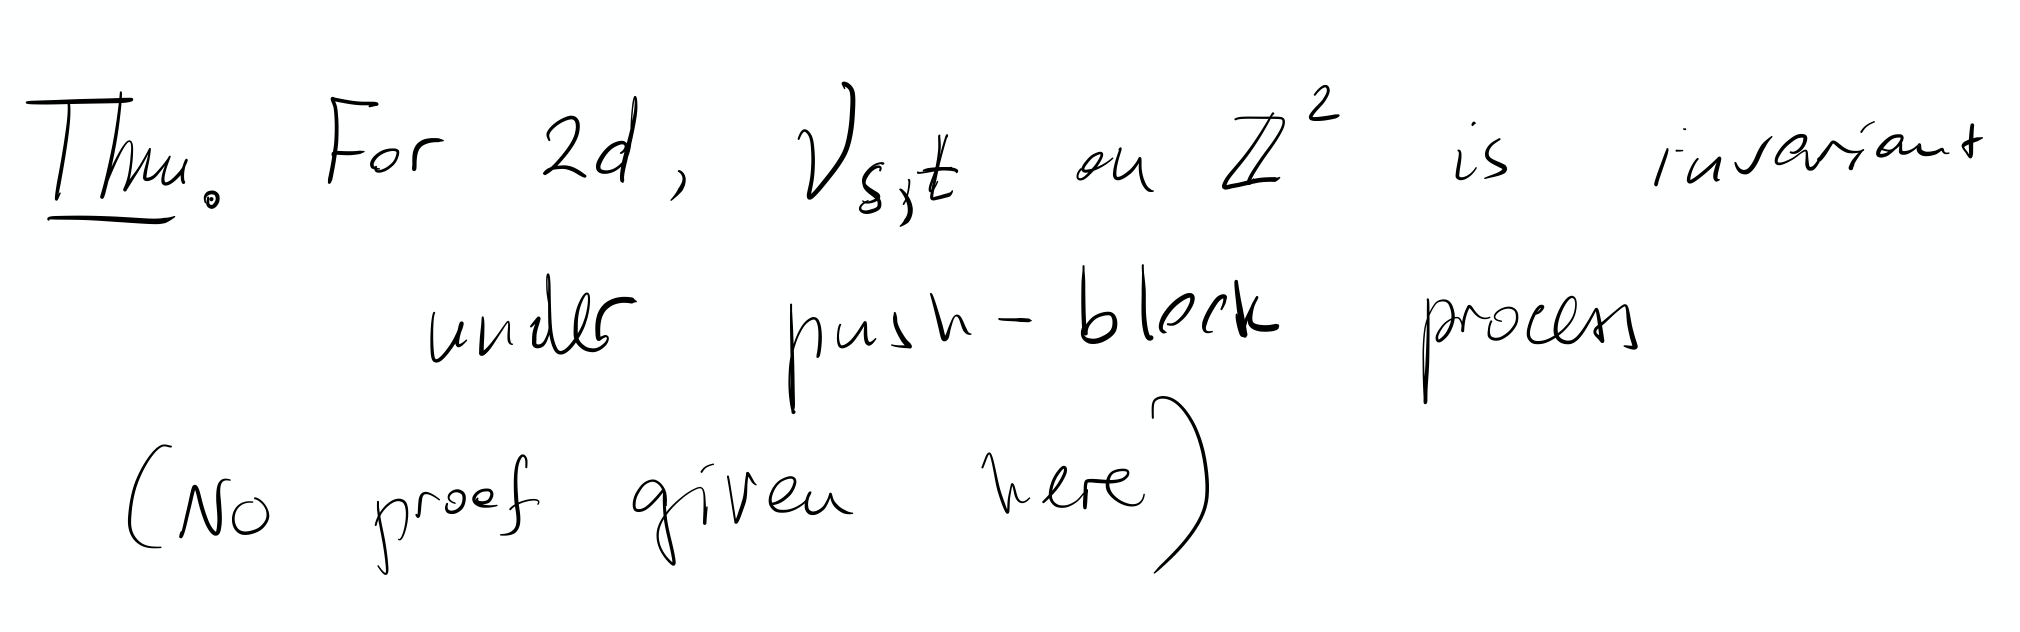 Thm. For 2d, ν_{s,t} on ℤ² is invariant
under push-block process
(No proof given here)